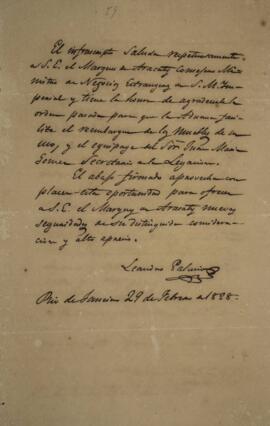 59
El infrascripto Saluda respetuosamente
a S. E. el Marques de Aracaty Consejero Mi-
nistro de Negocios Extrangeros de S. M. Im-
perial y tiene la honra de agradecerle la
orden pasada para que la Aduana faci-
lite el reembarque de los Muebles de su
uso, y el equipage del Sor. Juan Maria
Gomez Secretario de la Legacion.
El abajo firmado aprovecha con
placer esta oportunidad para ofrecer
a S. E. el Marques de Aracaty nuevas
seguridades de su distinguida considera-
cion y alto aprecio.
Leandro Palacios
Rio de Janeiro 29 de Febro. de 1828.